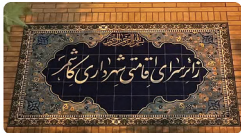 زائرسرای اقامتی شهرداری کاشمر